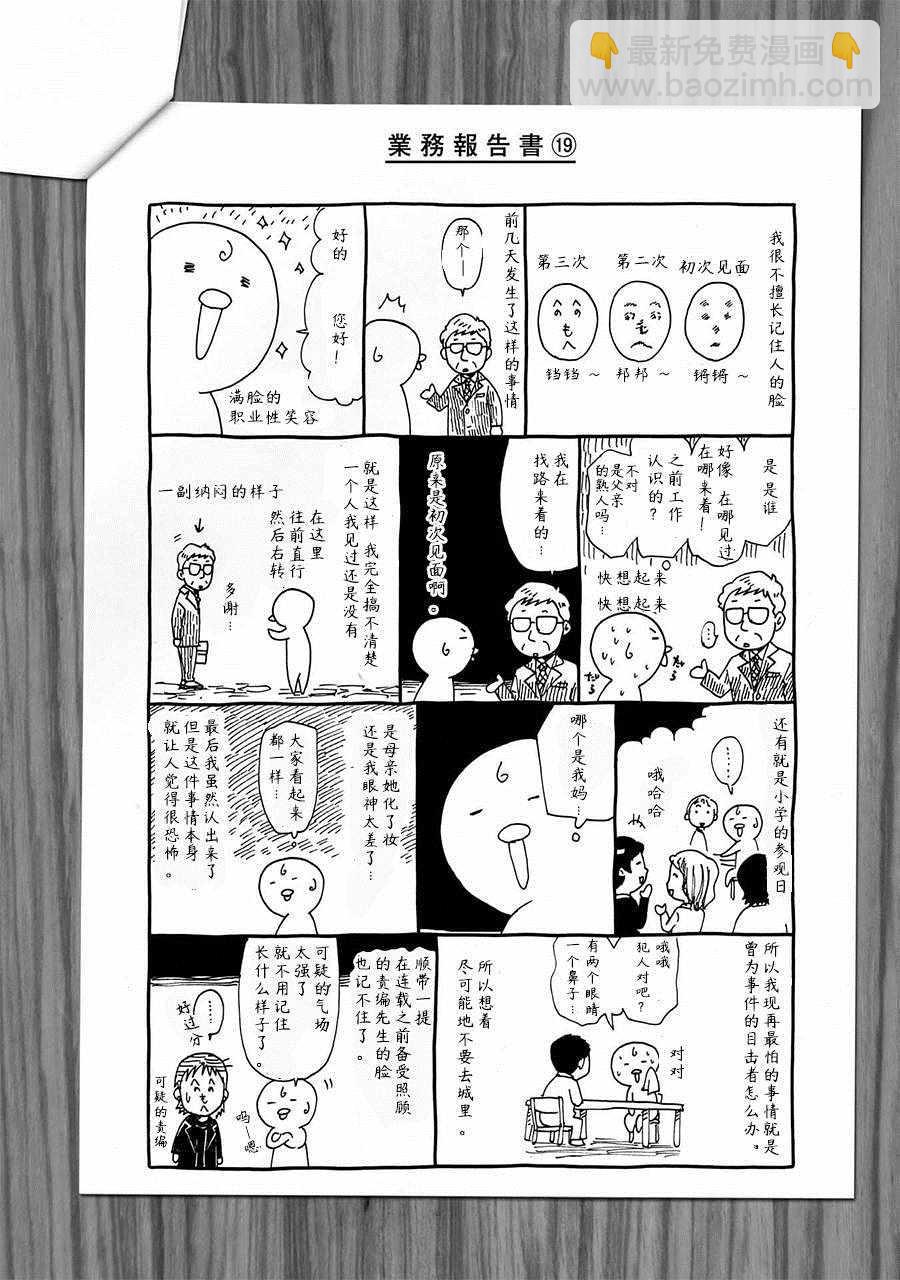 最新免费漫画
www.baozimh.com
業務報告書⑲
我很不擅长记住人的脸
初次见面
第二次
第三次
锵锵～
邦邦～
铛铛～
前几天发生了这样的事情
那个—
好的
您好！
满脸的
职业性笑容
是 是谁
好像 在哪见过
在哪来着！
之前工作
认识的？
不对
是父亲
的熟人吗…
快想起来
快想起来
…
だら
だら
我在
找路来着的…
原来是初次见面啊。
就是这样 我完全搞不清楚
一个人我见过还是没有
在这里
往前直行
然后右转
一副纳闷的样子
多谢…
还有就是小学的参观日
……
哦哈哈
哪个是我妈…
是母亲她化了妆
还是我眼神太差了…
大家看起来
都一样…
最后我虽然认出来了
但是这件事情本身
就让人觉得很恐怖。
所以我现再最怕的事情就是
曾为事件的目击者怎么办。
哦哦
犯人对吧？
有两个眼睛
一个鼻子…
对对
所以想着
尽可能地不要去城里。
顺带一提
在连载之前备受照顾
的责编先生的脸
也记不住了。
可疑的气场
太强了
就不用记住
长什么样子了。
吗—
嗯
……
好过分
可疑的责编